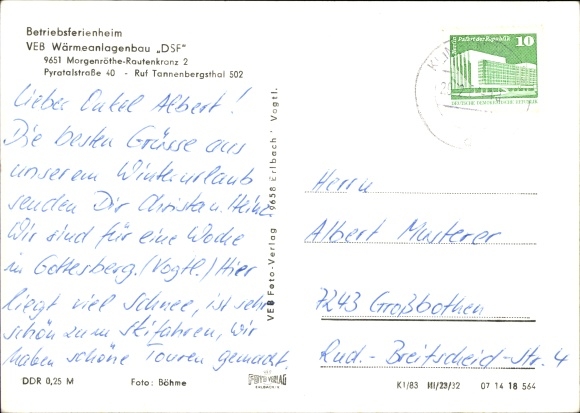 Betriebsferienheim
VEB Wärmeanlagenbau „DSF"
9651 Morgenröthe-Rautenkranz 2
Pyratalstraße 40 - Ruf Tannenbergsthal 502
Berlin, Palast der Republik 10
DEUTSCHE DEMOKRATISCHE REPUBLIK
Lieber Onkel Albert!
Die besten Grüsse aus
unserem Winterurlaub
senden Dir Christa u. Heinz
Wir sind für eine Woche
in Gottesberg. (Vogtl.) Hier
liegt viel Schnee, ist sehr
schön zum Skifahren, wir
haben schöne Touren gemacht.
VEB Foto-Verlag 9658 Erlbach Vogtl.
Herrn
Albert Musterer
7243 Großbothen
Rud.-Breitscheid-Str. 4
DDR 0,25 M Foto: Böhme
FOTO VERLAG
ERLBACH
K1/83 III/23/32 07 14 18 564